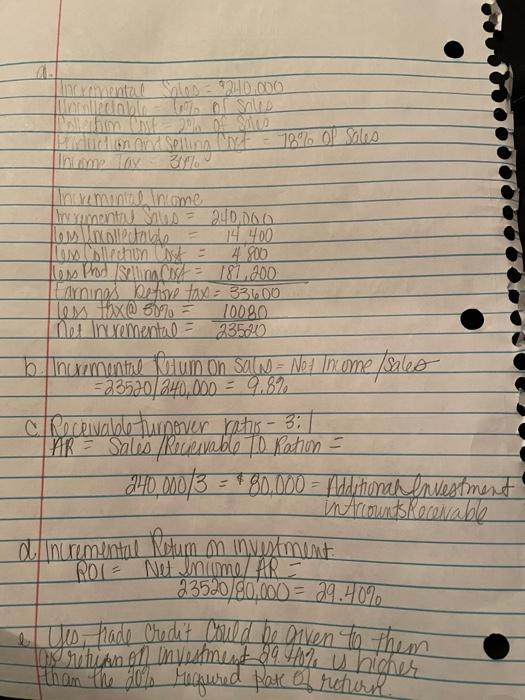 a.
Incremental Sales = $240,000
Uncollectable = 6% of sales
Collection Cost = 2% of Sales
Production and Selling Cost = 78% of Sales
Income Tax = 30%
Incremental Income
Incremental Sales = 240,000
less Uncollectable = 14 400
less Collection Cost = 4 800
less Prod/Selling Cost = 187,200
Earnings before tax = 33600
less tax@ 30% = 10080
Net Incremental = 23520
b. Incremental Return on Sales = Net Income/Sales
= 23520/240,000 = 9.8%
c. Receivable turnover ratio - 3:1
AR = Sales/Receivable TO Ration =
240,000/3 = $80,000 = Additional Investment
in Accounts Receivable
d. Incremental Return on investment
ROI = Net Income/AR =
23520/80,000 = 29.40%
e. Yes, trade credit could be given to them
as return on investment 29.40% is higher
than the 20% required rate of return.